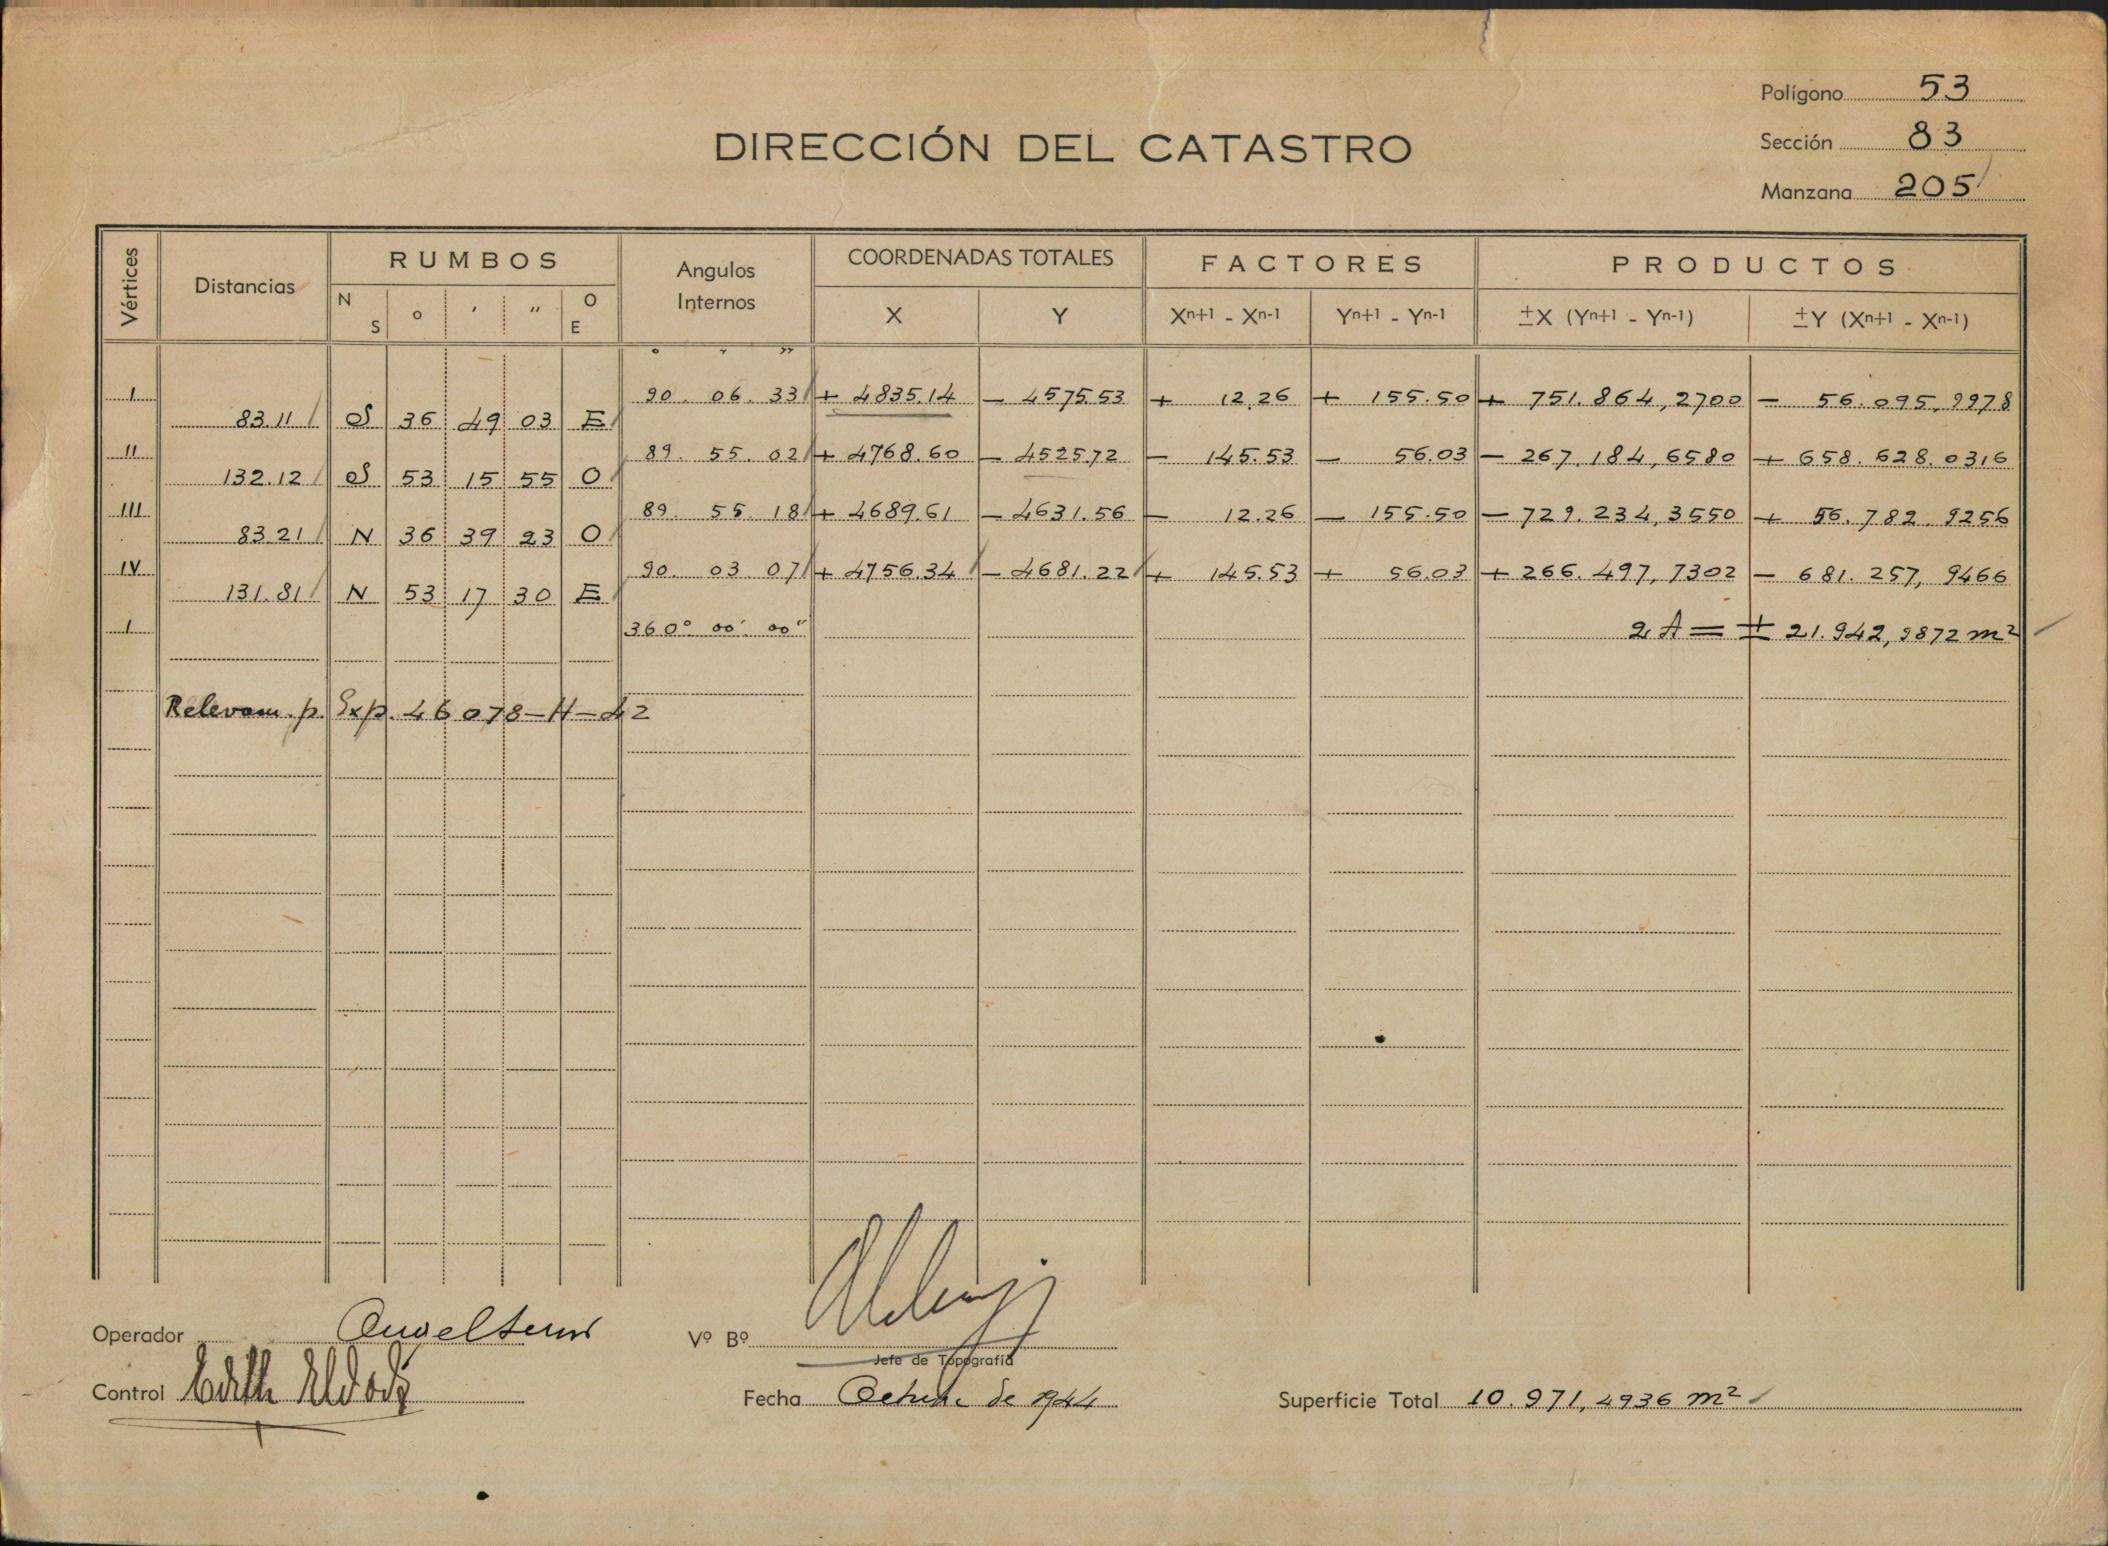 Polígono 53
DIRECCIÓN DEL CATASTRO
Sección 83
Manzana 205
Vértices Distancias RUMBOS Angulos Internos COORDENADAS TOTALES FACTORES PRODUCTOS
N S o ' " O E X Y Xn+1 - Xn-1 Yn+1 - Yn-1 ±X (Yn+1 - Yn-1) ±Y (Xn+1 - Xn-1)
o ' "
I 90. 06. 33 + 4835.14 - 4575.53 + 12.26 + 155.50 + 751.864,2700 - 56.095,9978
83.11 S 36 49 03 E
II 89. 55. 02 + 4768.60 - 4525.72 - 145.53 - 56.03 - 267.184,6580 + 658.628.0316
132.12 S 53 15 55 O
III 89. 55. 18 + 4689.61 - 4631.56 - 12.26 - 155.50 - 729.234,3550 + 56.782.9256
83.21 N 36 39 23 O
IV 90. 03. 07 + 4756.34 - 4681.22 + 145.53 + 56.03 + 266.497,7302 - 681.257,9466
131.81 N 53 17 30 E
I 360° 00' 00" 2A = ± 21.942,9872 m²
Relevam. p. Exp. 46078-H-42
Operador
Vº Bº
Jefe de Topografía
Control
Fecha Octubre de 1944
Superficie Total 10.971,4936 m²